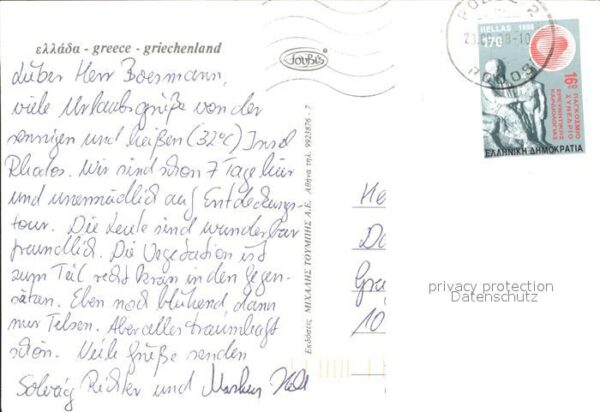 ελλάδα - greece - griechenland
Lieber Herr Boesmann,
viele Urlaubsgrüße von der
sonnigen und heißen (32°C) Insel
Rhodos. Wir sind schon 7 Tage hier
und unermüdlich auf Entdeckungs-
tour. Die Leute sind wunderbar
freundlich. Die Vegetation ist
zum Teil recht krass in den Gegen-
sätzen. Eben noch blühend, dann
nur Felsen. Aber alles traumhaft
schön. Viele Grüße senden
Solveig Richter und Markus
TOUBI'S
Εκδόσεις ΜΙΧΑΛΗΣ ΤΟΥΜΠΗΣ Α.Ε. Αθήνα τηλ. 9923876 - 7
ΡΟΔΟΣ 2
RODOS
HELLAS 1988
170
16º
ΠΑΓΚΟΣΜΙΟ
ΣΥΝΕΔΡΙΟ
ΕΛΛΗΝΙΚΗ ΔΗΜΟΚΡΑΤΙΑ
He
Do
Gra
10
privacy protection
Datenschutz